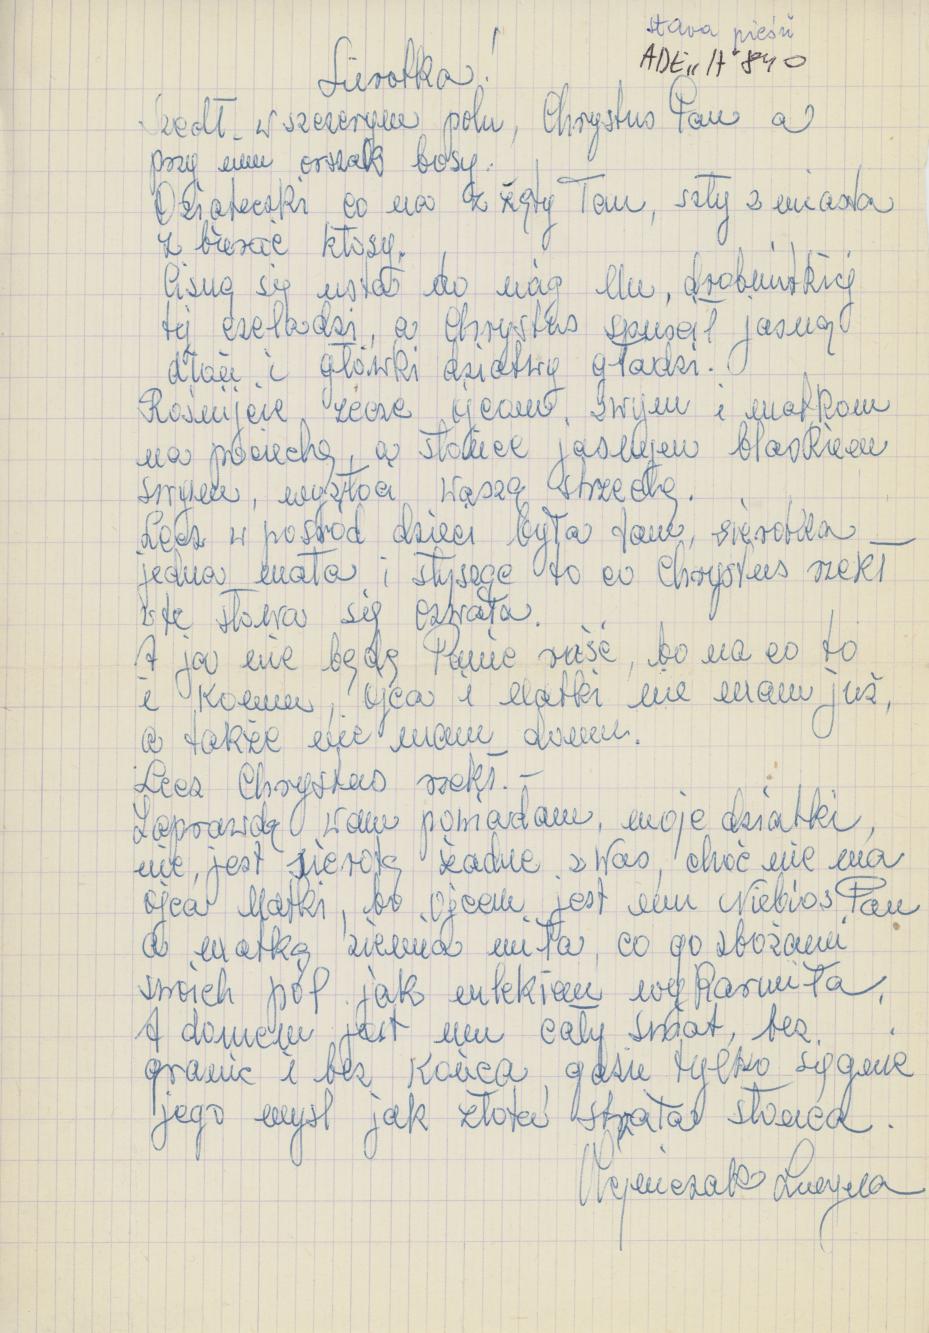 stara pieśń
ADE "A" 840
Sierotka!
Szedł w szczerym polu, Chrystus Pan a
przy nim orszak bosy.
Dziateczki co na zżęty Łan, szły z miasta
zbierać kłosy.
Cisną się usta do nóg Mu, drobniutkiej
tej czeladzi, a Chrystus spuścił jasną
dłoń i główki dziatwy gładzi.
Rośnijcie rzecze ojcom, swym i matkom
na pociechę, a słońce jasnym blaskiem
swym, wyzłoci waszą strzechę.
Lecz w pośród dzieci była tam, sierotka
jedna mała i słysząc to co Chrystus rzekł
w te słowa się ozwała.
A ja nie będę Panie rość, bo na co to
i komu, ojca i Matki nie mam już,
a także nie mam domu.
Lecz Chrystus rzekł. –
Zaprawdę wam powiadam, moje dziatki,
nie, jest sierotą żadne z Was, choć nie ma
ojca Matki, bo ojcem jest mu Niebios Pan
a matką ziemia miła, co go zbożami
swoich pól jak mlekiem wykarmiła.
A domem jest mu cały świat, bez
granic i bez końca, gdzie tylko sięgnie
jego myśl jak złota strzała słońca.